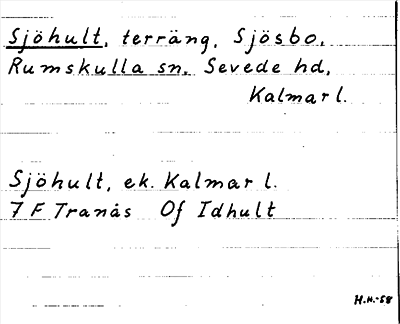 Sjöhult, terräng, Sjösbo,
Rumskulla sn, Sevede hd,
Kalmar l.
Sjöhult, ek. Kalmar l.
7 F Tranås Of Idhult
H.H.-58